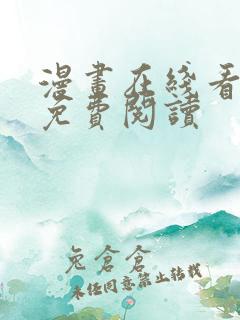 漫畫在綫看
免費閱讀
兔倉倉
未經同意禁止轉載